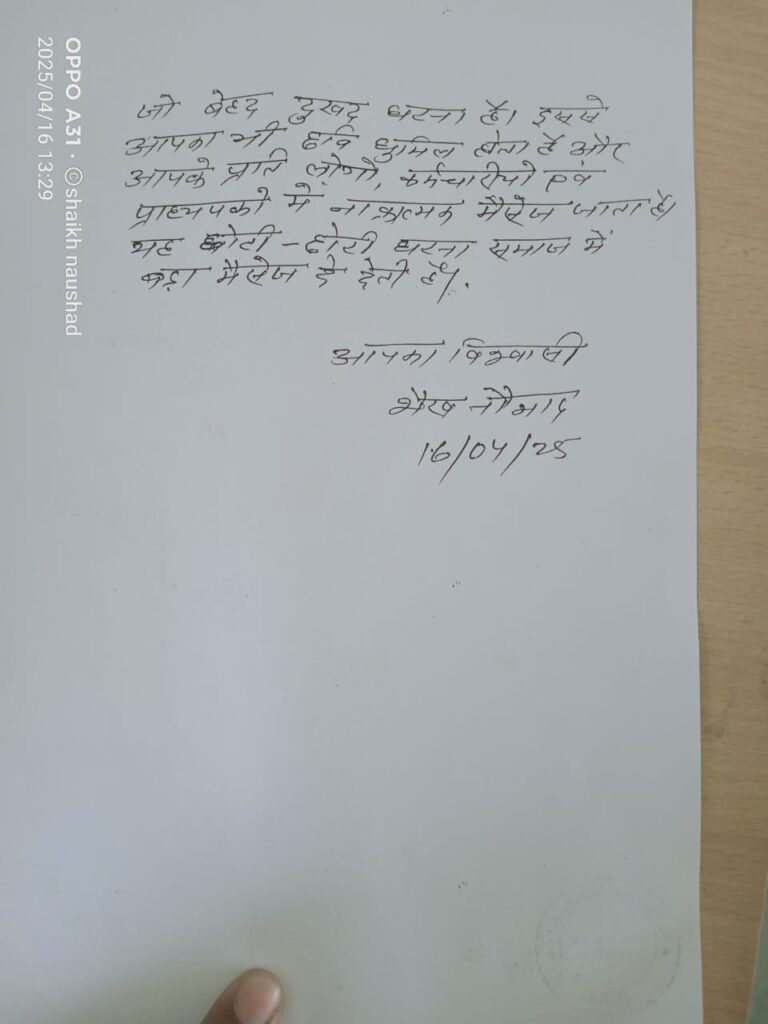 जो बेहद दुखद घटना है। इससे
आपका भी छवि धुमिल होता है और
आपके प्रति लोगों, कर्मचारीयो एवं
प्राध्यपको में नाकात्मक मैसेज जाता है।
यह छोटी - छोटी घटना समाज में
बड़ा मैसेज दे देती है।.
आपका विश्वासी
शैख नौशाद
16/04/25
OPPO A31 · ©shaikh naushad
2025/04/16 13:29